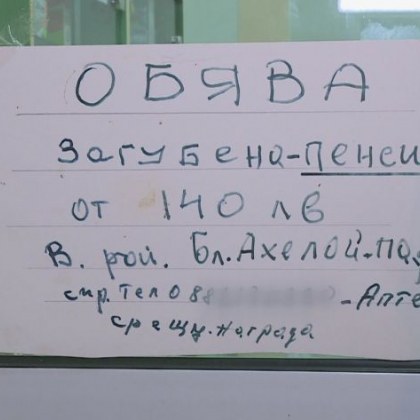 ОБЯВА
Загубена-ПЕНСИ
ОТ 140 лв
В. рой. Бл.Ахелой-Па
спр.Тел 088 -Апте
срещу.награда